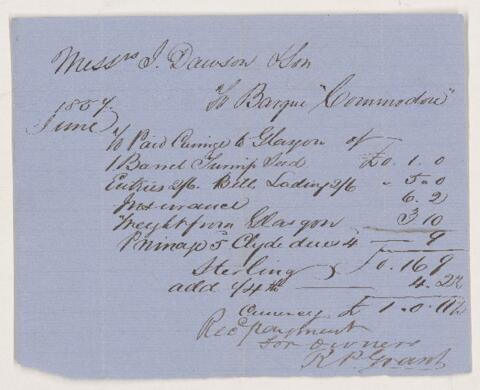 Messrs J. Dawson & Son
To Barque "Commodore"
1857.
June
To Paid Carriage to Glasgow of
1 Barrel Turnip Seed £0. 1. 0
Entries 2/6. Bill Lading 2/6 " 5 " 0
Insurance 6. 2
Freight from Glasgow 3 10
Primage 5 Clyde dues 4 9
Sterling £0. 16 9
add 1/4th 4. 2¼
Currency £ 1. 0. 11¼
Rec'd payment
for owners
R. P. Grant